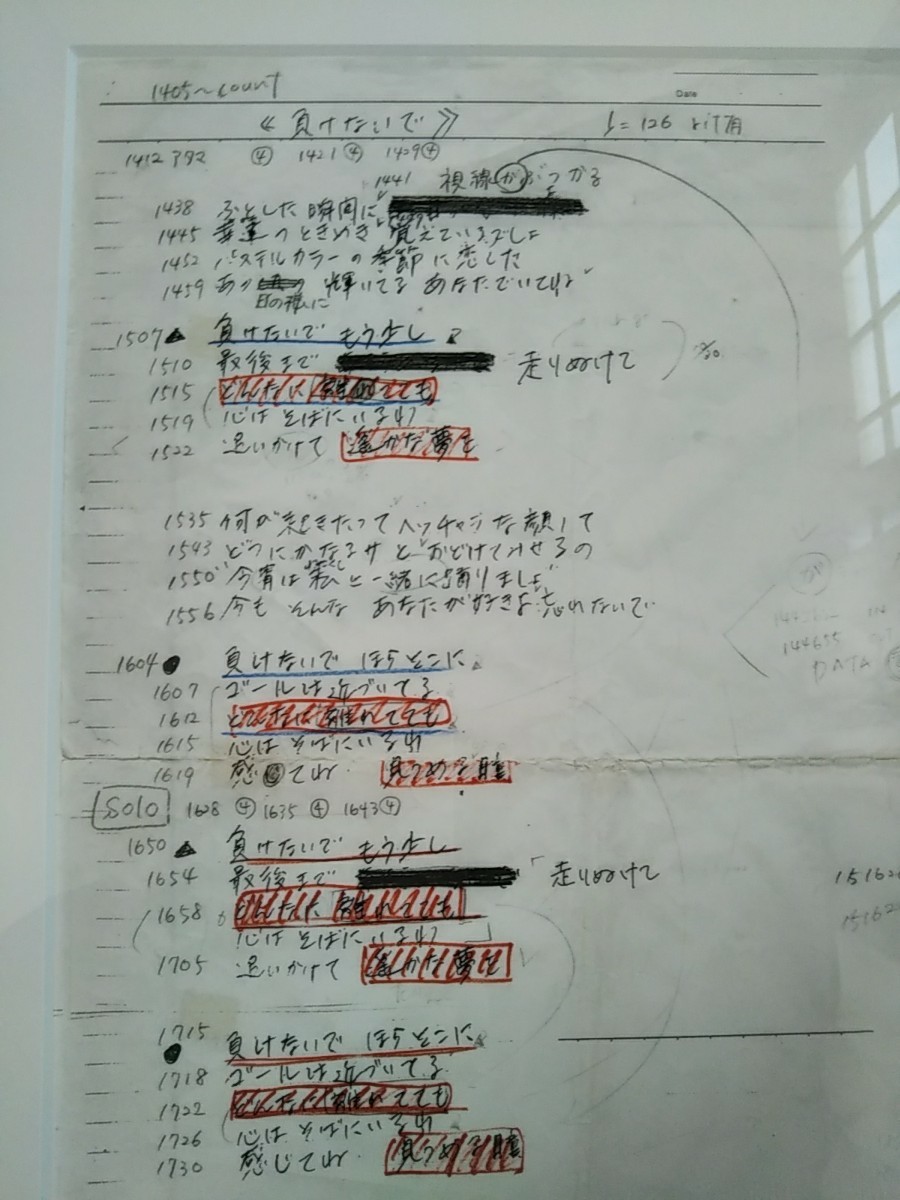 1405~count
Date
《 負けないで 》 ♩=126
1412 ④ 1421④ 1429④
1441 視線がぶつかる
1438 ふとした瞬間に
1445 幸運のときめき 覚えているでしょ
1452 パステルカラーの季節に恋した
1459 あの 輝いてる あなたでいてね
日の様に
1507▲ 負けないで もう少し
1510 最後まで 走りぬけて
1515 どんなに 離れてても
1519 心は そばにいるわ
1522 追いかけて 遥かな夢を
1535 何が起きたって ヘッチャラな顔して
1543 どうにかなるサと おどけてみせるの
1550 "今宵は私と一緒に踊りましょ"
1556 今も そんな あなたが好きよ 忘れないで
1604● 負けないで ほらそこに
1607 ゴールは近づいてる
1612 どんなに 離れてても
1615 心は そばにいるわ
1619 感じてね 見つめる瞳
SOLO 1628 ④ 1635 ④ 1643④
1650 ▲ 負けないで もう少し
1654 最後まで 走りぬけて
1658 どんなに 離れてても
心は そばにいるわ
1705 追いかけて 遥かな夢を
1715 ● 負けないで ほらそこに
1718 ゴールは近づいてる
1722 どんなに 離れてても
1726 心は そばにいるわ
1730 感じてね 見つめる瞳
が
144655
DATA